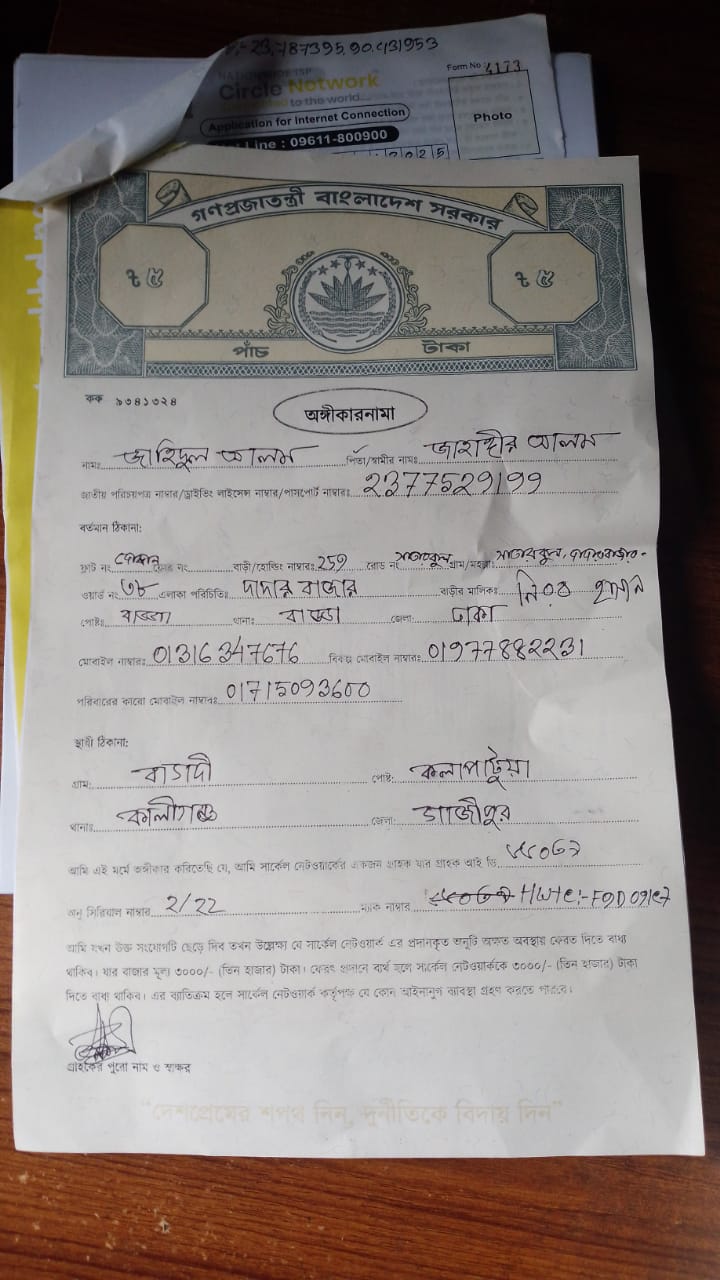 :- 23.787395,90.431953
NATIONWIDE ISP
Circle Network
to the world...
Form No: 4173
Photo
Application for Internet Connection
Line : 09611-800900
2025
গণপ্রজাতন্ত্রী বাংলাদেশ সরকার
৳ ৫
৳ ৫
পাঁচ টাকা
কক ৯৩৪১৩২৪
অঙ্গীকারনামা
নামঃ জাহিদুল আলম পিতা/স্বামীর নামঃ জাহাঙ্গীর আলম
জাতীয় পরিচয়পত্র নাম্বার/ড্রাইভিং লাইসেন্স নাম্বার/পাসপোর্ট নাম্বারঃ 2377529199
বর্তমান ঠিকানা:
ফ্লাট নং দোকান নং বাড়ী/হোল্ডিং নাম্বারঃ 259 রোড নং সাতারকুল গ্রাম/মহল্লা সাতারকুল,
ওয়ার্ড নং ৩৮ এলাকা পরিচিতিঃ দাদার বাজার বাড়ীর মালিকঃ হাসান
পোষ্টঃ বাড্ডা থানাঃ বাড্ডা জেলা: ঢাকা
মোবাইল নাম্বারঃ 01316347676 বিকল্প মোবাইল নাম্বারঃ 01977882231
পরিবারের কারো মোবাইল নাম্বারঃ 01715093600
স্থায়ী ঠিকানা:
গ্রাম: বাগদী পোষ্ট: কলাপাটুয়া
থানাঃ কালীগঞ্জ জেলা: গাজীপুর
আমি এই মর্মে অঙ্গীকার করিতেছি যে, আমি সার্কেল নেটওয়ার্কের একজন গ্রাহক যার গ্রাহক আই ডি
অনু সিরিয়াল নাম্বার 2/22 ম্যাক নাম্বার
আমি যখন উক্ত সংযোগটি ছেড়ে দিব তখন উল্লেক্ষ্য যে সার্কেল নেটওয়ার্ক এর প্রদানকৃত অনুটি অক্ষত অবস্থায় ফেরত দিতে বাধ্য
থাকিব। যার বাজার মূল্য ৩০০০/- (তিন হাজার) টাকা। ফেরৎ প্রদানে ব্যর্থ হলে সার্কেল নেটওয়ার্ককে ৩০০০/- (তিন হাজার) টাকা
দিতে বাধ্য থাকিব। এর ব্যাতিক্রম হলে সার্কেল নেটওয়ার্ক কর্তৃপক্ষ যে কোন আইনানুগ ব্যবস্থা গ্রহণ করতে পারবে।
গ্রাহকের পুরো নাম ও স্বাক্ষর
"দেশপ্রেমের শপথ নিন, দুর্নীতিকে বিদায় দিন"